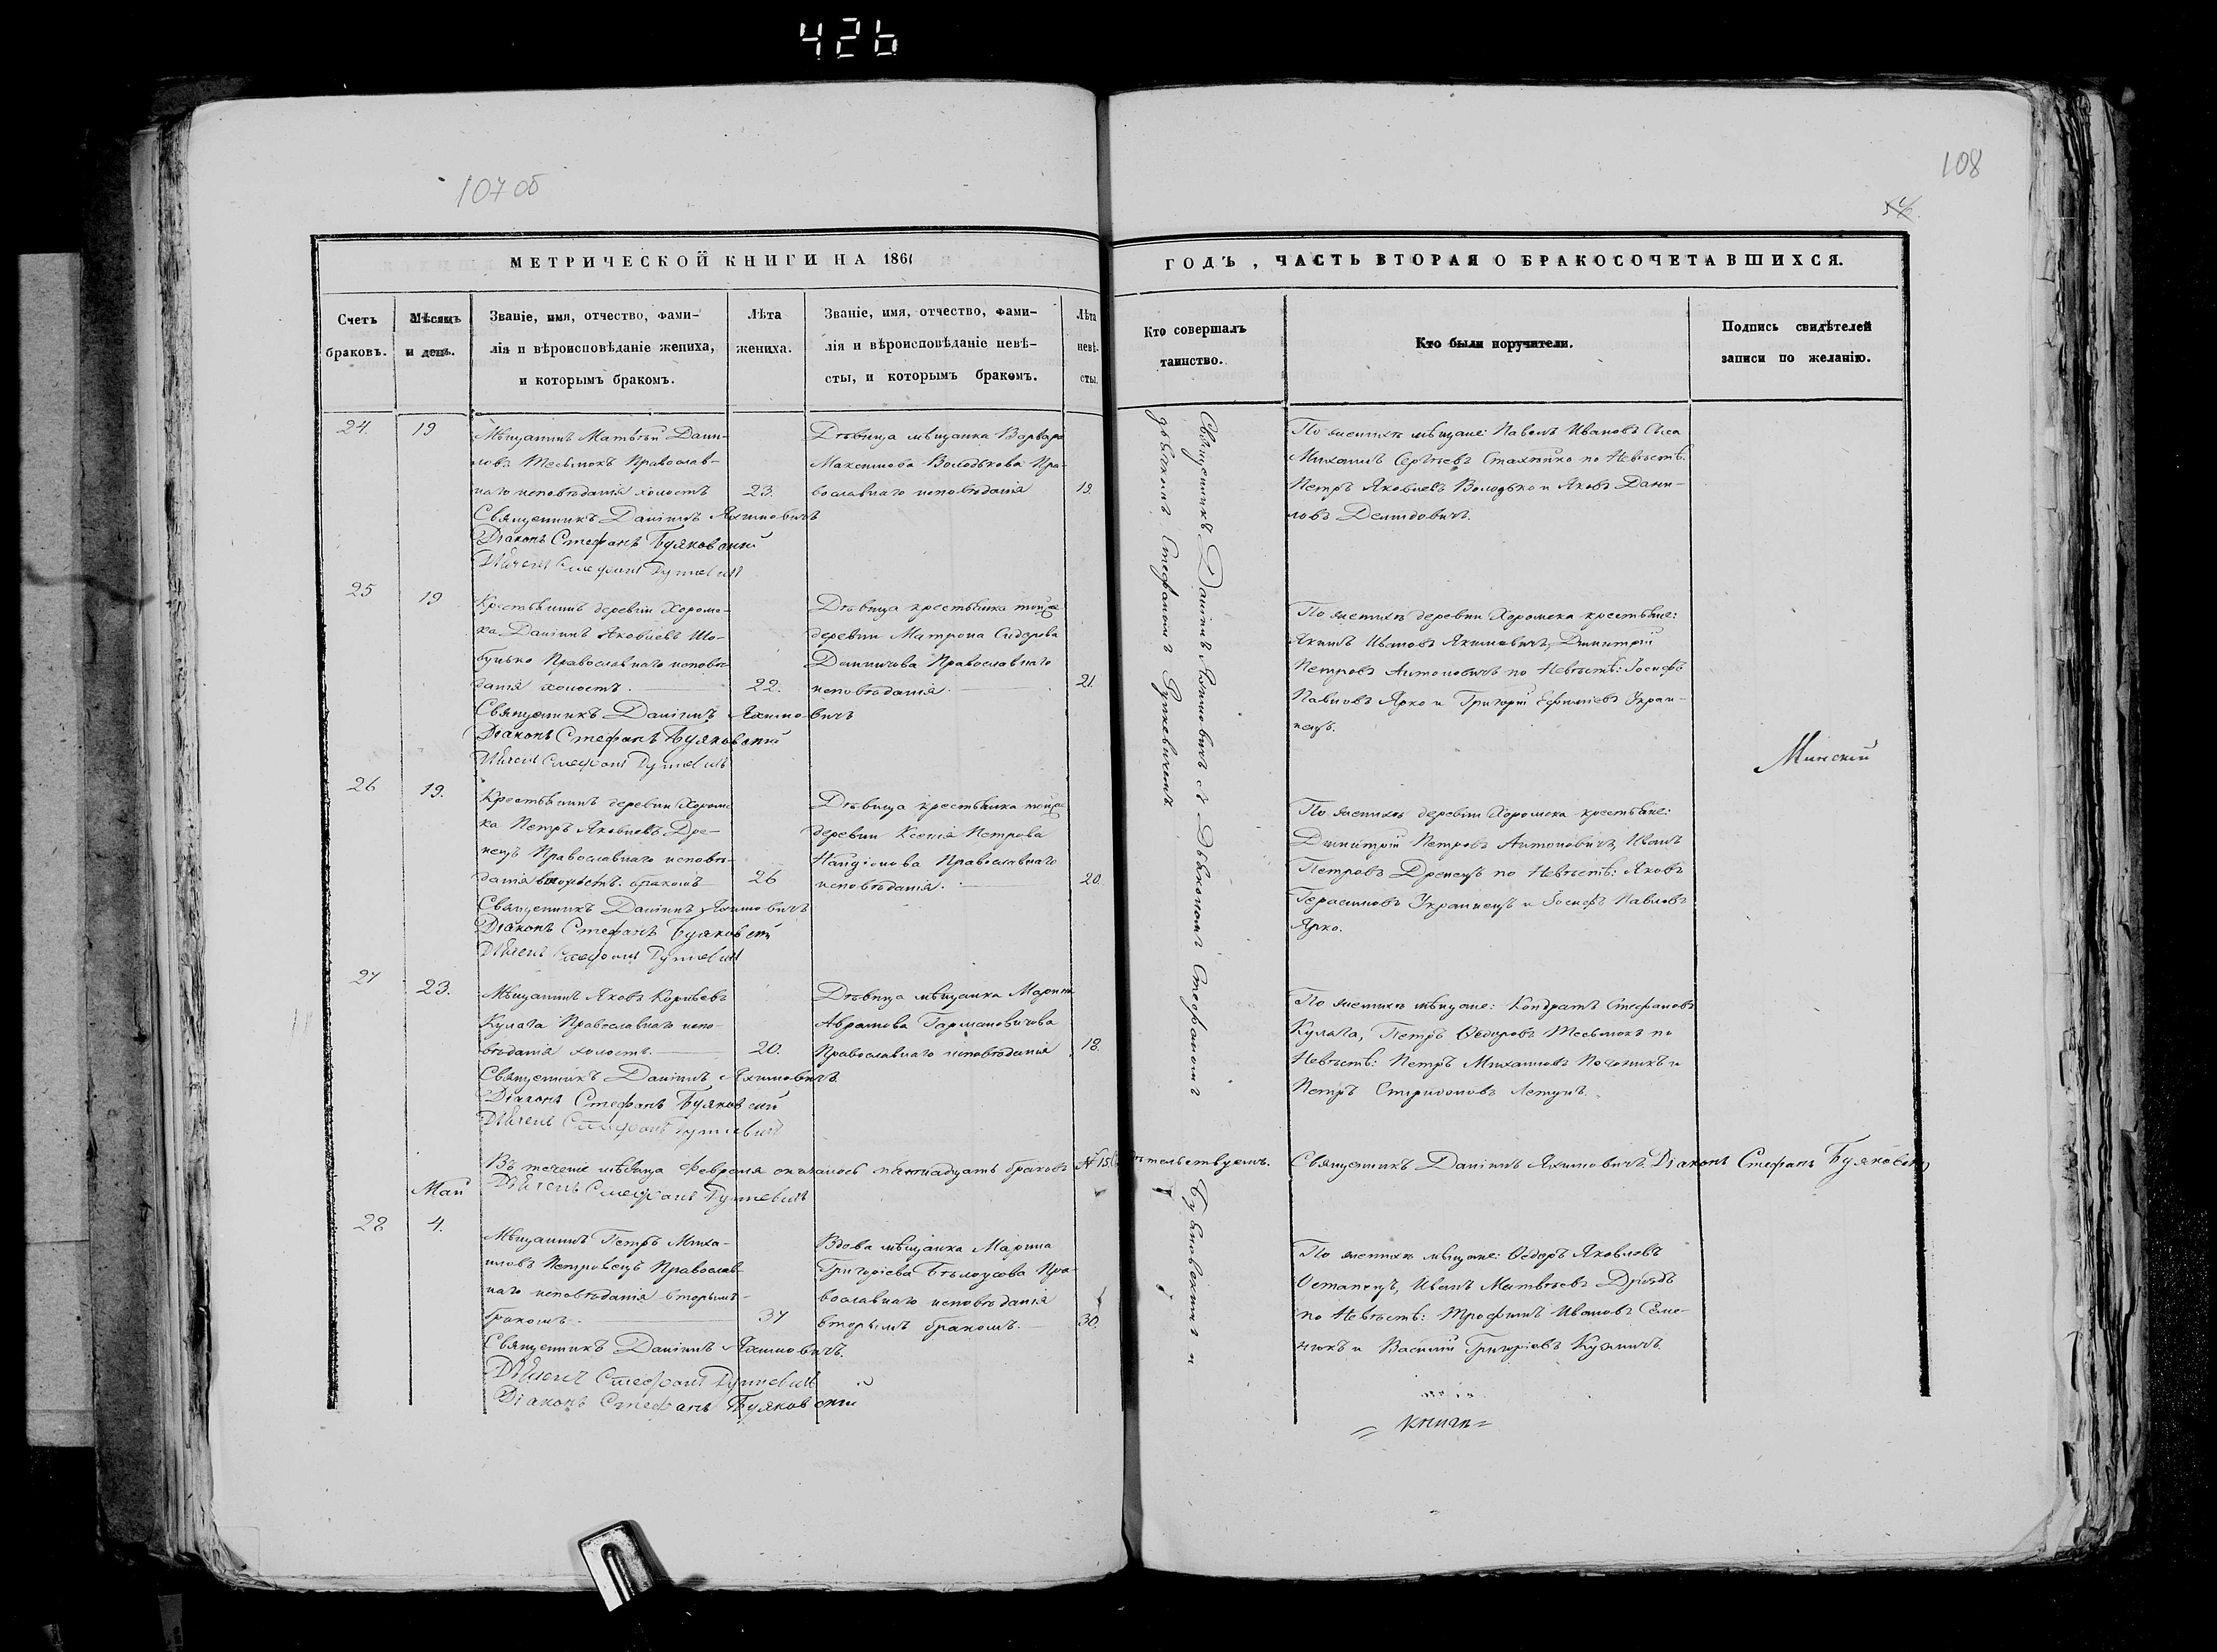 426
107 об
108
МЕТРИЧЕСКОЙ КНИГИ НА 1861
ГОДЪ, ЧАСТЬ ВТОРАЯ О БРАКОСОЧЕТАВШИХСЯ.
Счетъ
браковъ.
Мѣсяцъ
и день.
Званіе, имя, отчество, фами-
лія и вѣроисповѣданіе жениха,
и которымъ бракомъ.
Лѣта
жениха.
Званіе, имя, отчество, фами-
лія и вѣроисповѣданіе невѣ-
сты, и которымъ бракомъ.
Лѣта
невѣ-
сты.
Кто совершалъ
таинство.
Кто были поручители.
Подпись свидѣтелей
записи по желанію.
24.
19
Мѣщанинъ Матвѣй Дани-
ловъ Тесьмокъ Православ-
наго исповѣданія холостъ
23.
Священникъ Даніилъ Яхимовичъ
Діаконъ Стефанъ Буяковскій
Дѣвица мѣщанка Варвара
Максимова Володькова Пра-
вославнаго исповѣданія
19.
По женихѣ мѣщане: Павелъ Ивановъ
Михаилъ Сергѣевъ по Невѣстѣ:
Петръ Яковлевъ Володько и Яковъ Дани-
ловъ Демидовичъ.
25
19
Крестьянинъ деревни Хоромс-
ка Даніилъ Яковлевъ Шо-
бунько Православнаго исповѣ-
данія холостъ.
22.
Священникъ Даніилъ Яхимовичъ
Діаконъ Стефанъ Буяковскій
Дѣвица крестьянка тойже
деревни Матрона Сидорова
Православнаго
исповѣданія.
21.
По женихѣ деревни Хоромска крестьяне:
Якимъ Ивановъ Якимовичъ, Димитрій
Петровъ Антоновичъ по Невѣстѣ: Іосифъ
Павловъ Ярко и Григорій Ефимовъ Украи-
нецъ.
Минскій
26
19.
Крестьянинъ деревни Хоромс-
ка Петръ Яковлевъ Дре-
нецъ Православнаго исповѣ-
данія бракомъ
26
Священникъ Даніилъ Яхимовичъ
Діаконъ Стефанъ Буяковскій
Дѣвица крестьянка тойже
деревни Ксенія Петрова
Православнаго
исповѣданія.
20.
По женихѣ деревни Хоромска крестьяне:
Димитрій Петровъ Антоновичъ, Иванъ
Петровъ Дренецъ по Невѣстѣ: Яковъ
Герасимовъ Украинецъ и Іосифъ Павловъ
Ярко.
27
23.
Мѣщанинъ Яковъ Корнѣевъ
Кулага Православнаго испо-
вѣданія холостъ.
20.
Священникъ Даніилъ Яхимовичъ.
Діаконъ Стефанъ Буяковскій
Дѣвица мѣщанка Марина
Аврамова Гармановичова
Православнаго исповѣданія
18.
По женихѣ мѣщане: Кондратъ Стефановъ
Кулага, Петръ Ѳедоровъ Тесьмокъ по
Невѣстѣ: Петръ Михаиловъ и
Петръ Спиридоновъ Летунъ.
Въ теченіе мѣсяца февраля оказалось пятнадцать браковъ № 15 свидѣтельствуемъ. Священникъ Даніилъ Яхимовичъ. Діаконъ Стефанъ Буяковскій
Май
28
4.
Мѣщанинъ Петръ Миха-
иловъ Петровецъ Православ-
наго исповѣданія вторымъ
бракомъ.
37
Священникъ Даніилъ Яхимовичъ.
Діаконъ Стефанъ Буяковскій
Вдова мѣщанка Марина
Григоріева Бѣлоусова Пра-
вославнаго исповѣданія
вторымъ бракомъ.
30.
По женихѣ мѣщане: Ѳедоръ Яковлевъ
Остапецъ, Иванъ Матвѣевъ Дроздъ
по Невѣстѣ: Трофимъ Ивановъ Семе-
нюкъ и Василій Григоріевъ Кузмичъ.
Священникъ Даніилъ Яхимовичъ съ Діакономъ Стефаномъ Буяковскимъ и
дьячкомъ Стефаномъ
= книги =